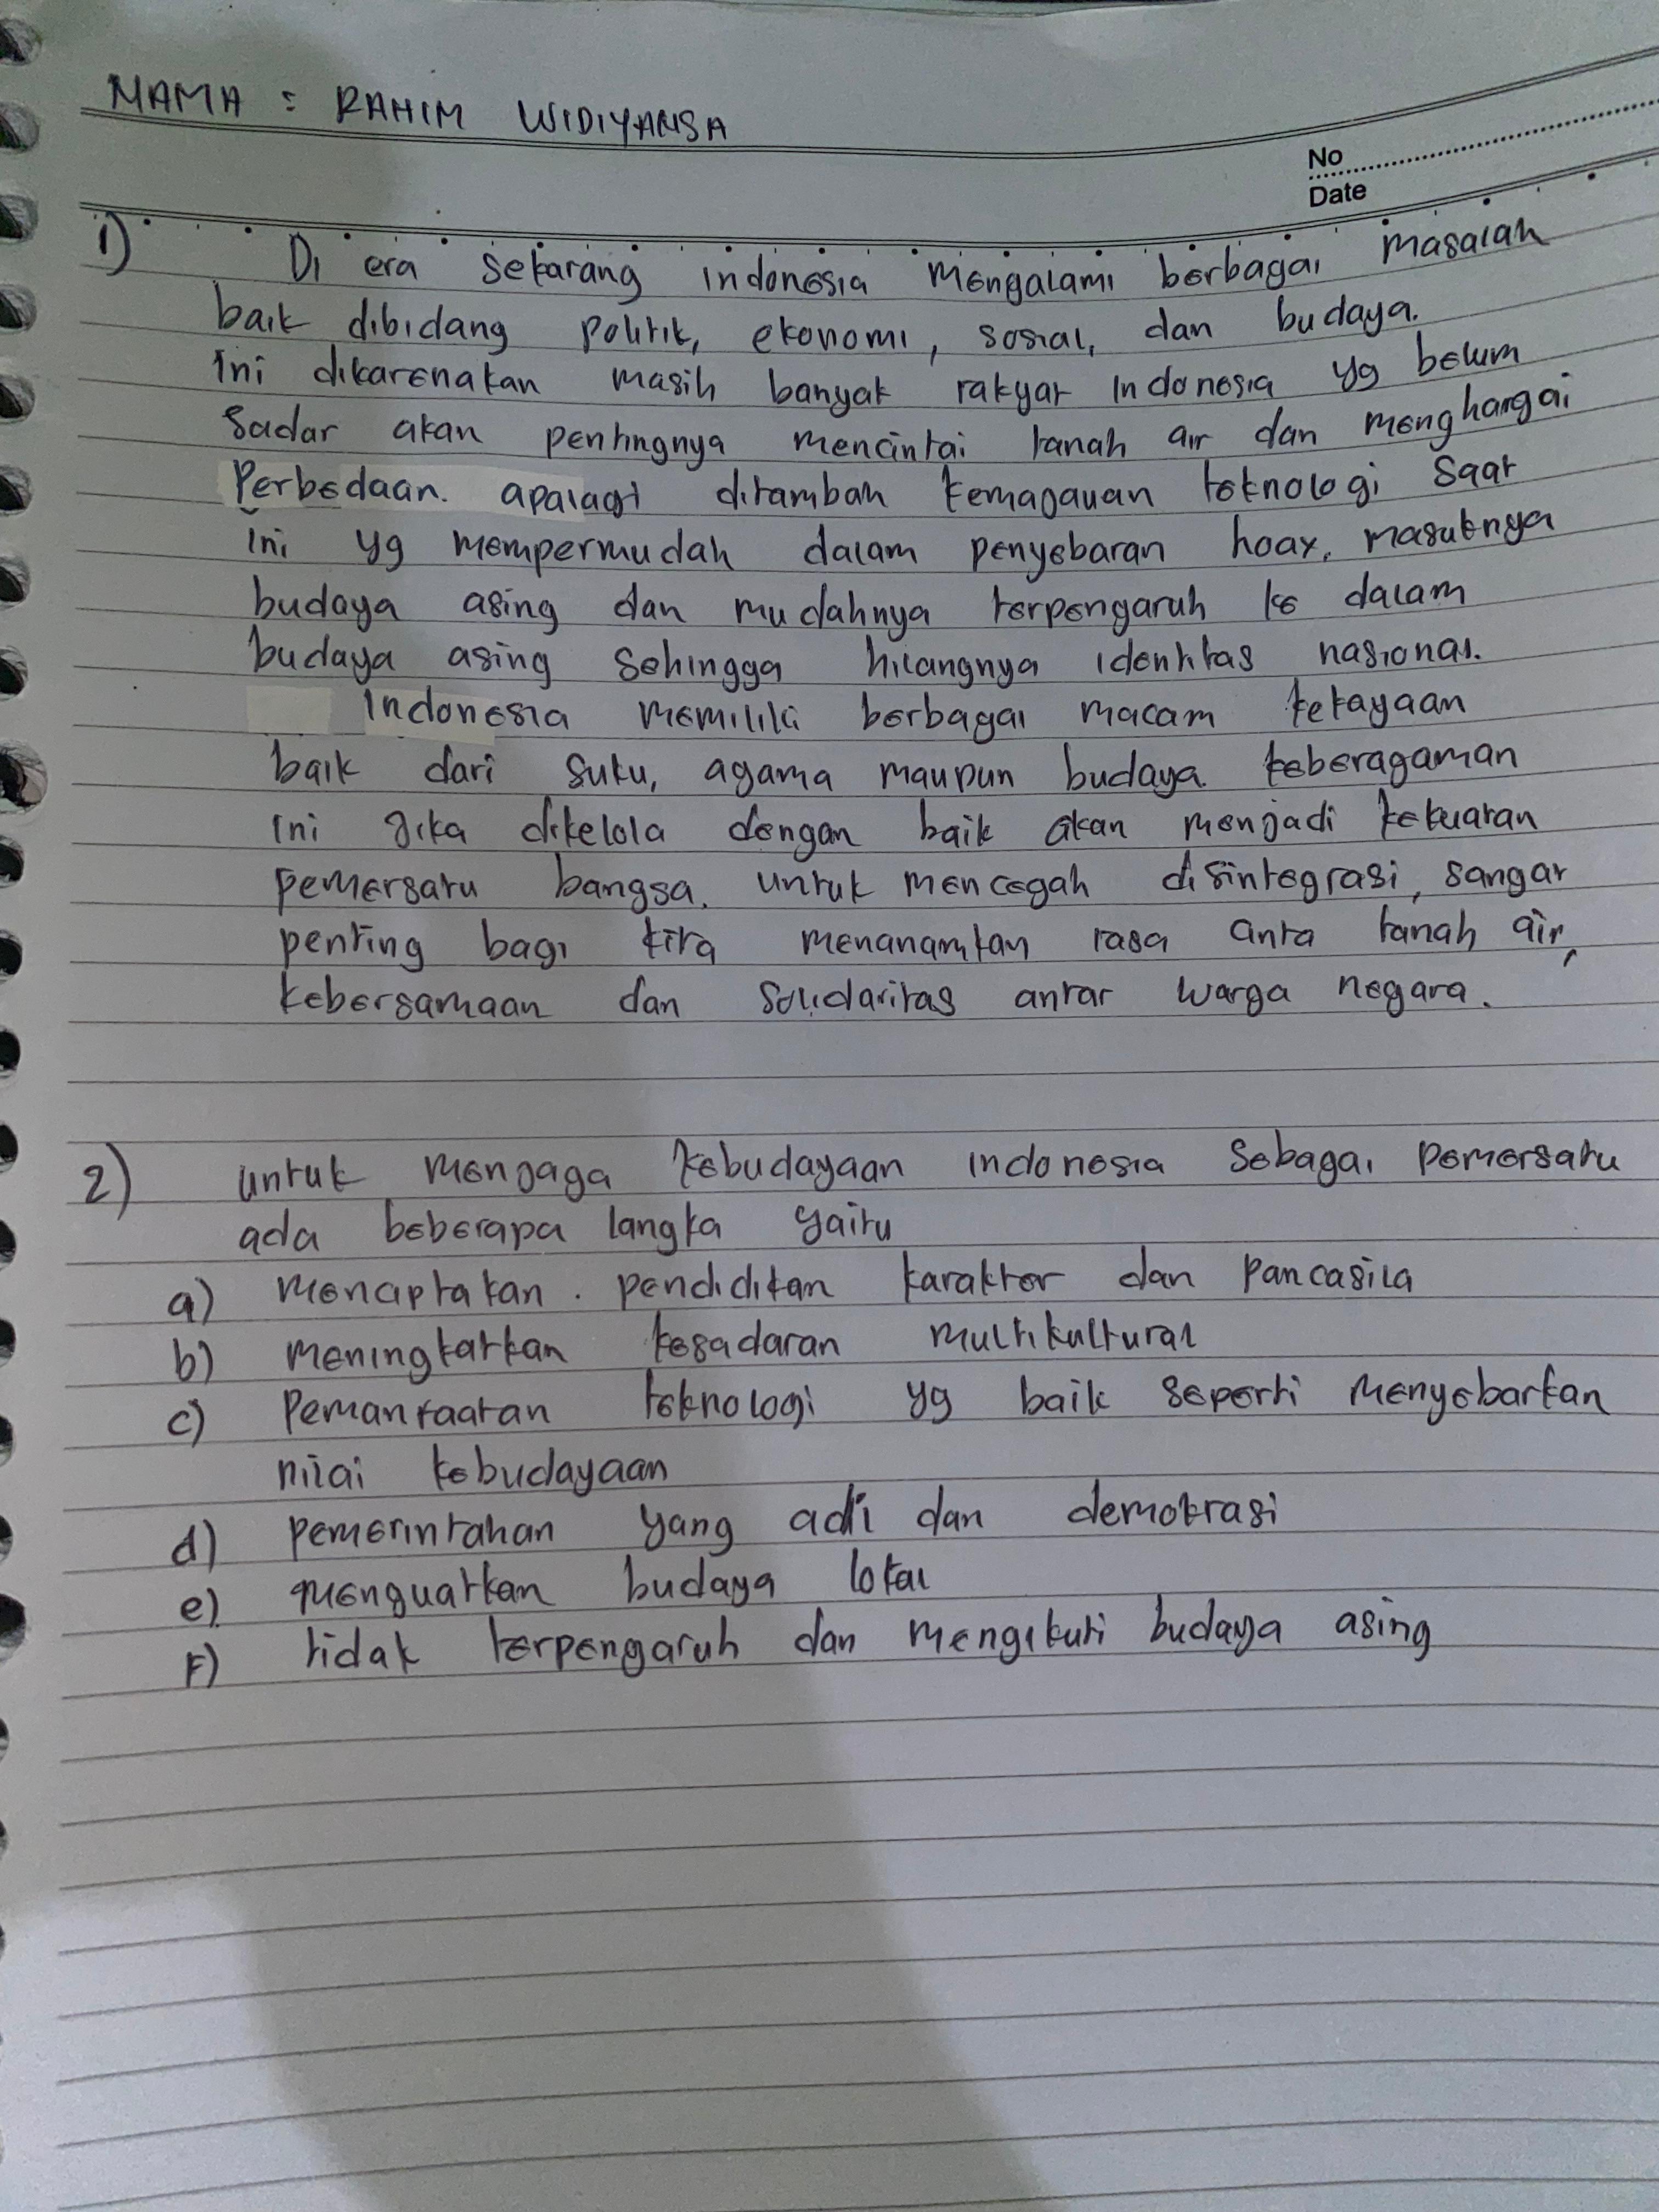 NAMA : RAHIM WIDIYANSA
No
Date
1) Di era sekarang indonesia mengalami berbagai masalah
baik dibidang politik, ekonomi, sosial, dan budaya.
Ini dikarenakan masih banyak rakyat Indonesia yg belum
sadar akan pentingnya mencintai tanah air dan menghargai
Perbedaan. apalagi ditambah kemajauan teknologi saat
ini yg mempermudah dalam penyebaran hoax, masuknya
budaya asing dan mudahnya terpengaruh ke dalam
budaya asing sehingga hilangnya identitas nasional.
Indonesia memiliki berbagai macam kekayaan
baik dari suku, agama maupun budaya. keberagaman
ini jika dikelola dengan baik akan menjadi kekuatan
pemersatu bangsa. untuk mencegah disintegrasi, sangat
penting bagi kita menanamkan rasa cinta tanah air,
kebersamaan dan solidaritas antar warga negara.
2) untuk menjaga kebudayaan indonesia sebagai pemersatu
ada beberapa langka yaitu
a) menciptakan . pendidikan karakter dan Pancasila
b) meningkatkan kesadaran multikultural
c) Pemanfaatan teknologi yg baik seperti menyebarkan
nilai kebudayaan
d) pemerintahan yang adil dan demokrasi
e) menguatkan budaya lokal
F) tidak terpengaruh dan mengikuti budaya asing